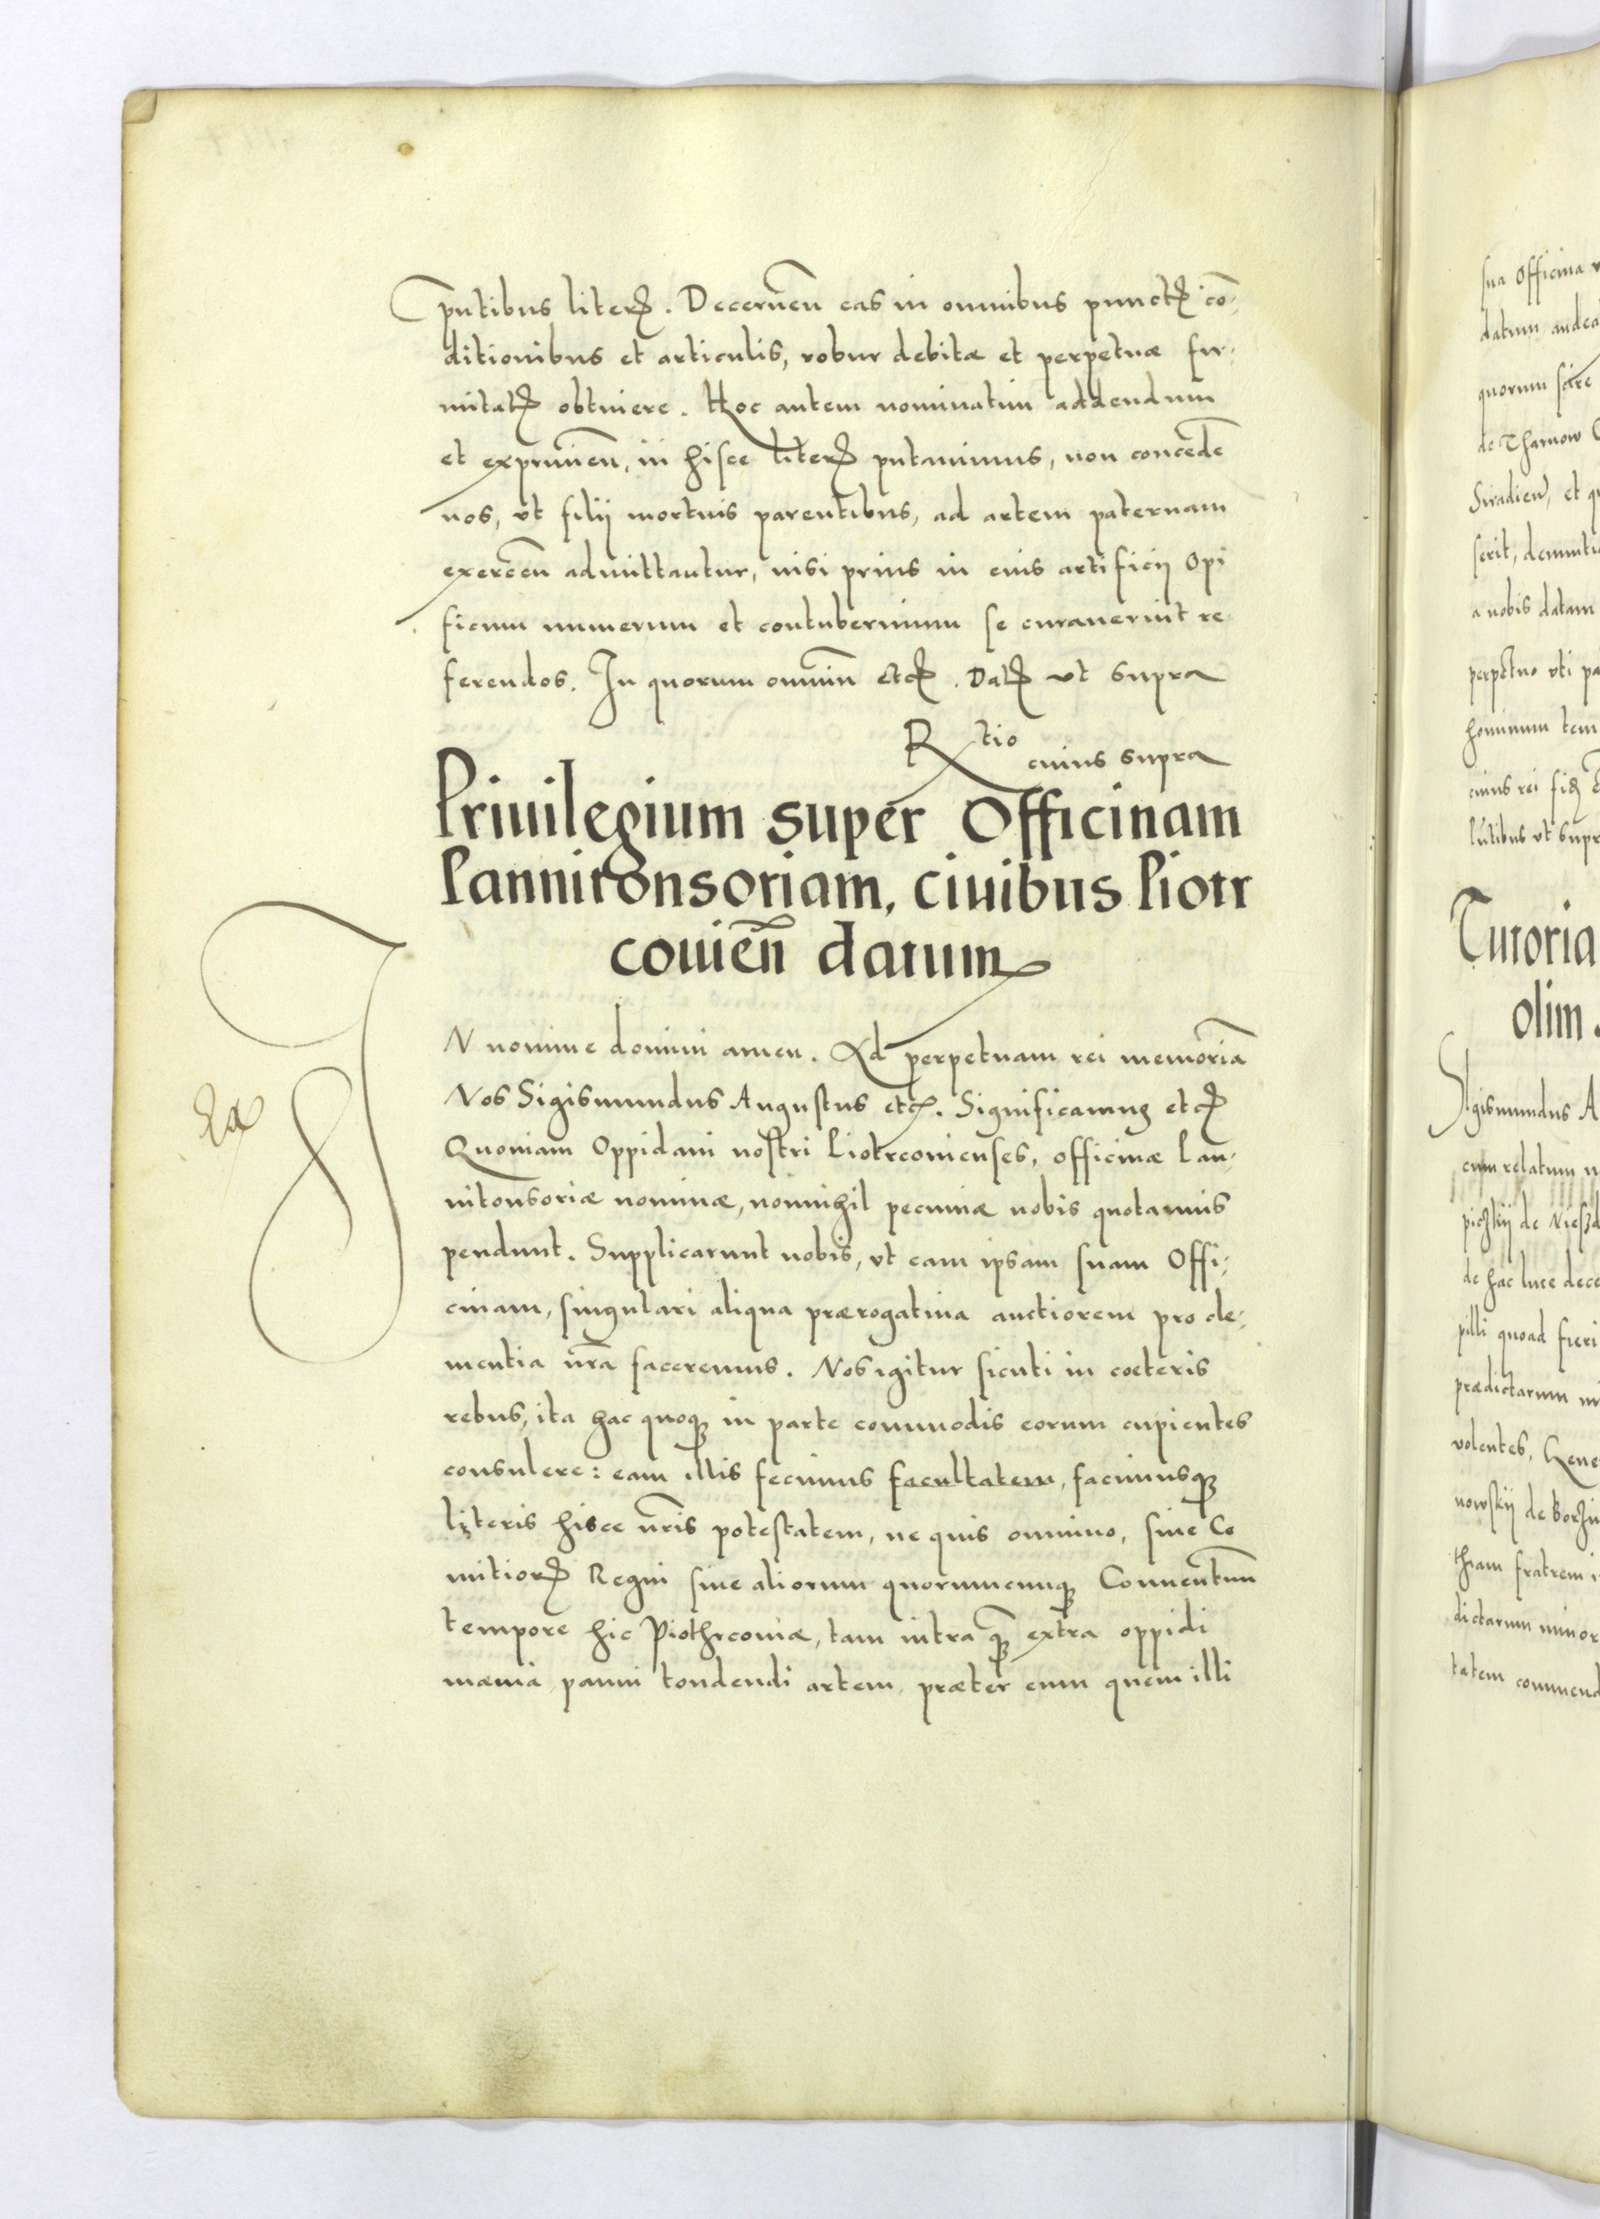 pntibus literꝭ. Decernen̄ eas in omnibus punctꝭ cō-
ditionibus et articulis, robur debitæ et perpetuæ fir-
mitatꝭ obtinere. Hoc autem nominatim addendum
et exprimen̄, in hisce literꝭ putauimus, non concēde
nos, vt filij mortuis parentibus, ad artem paternam
exercen̄ admittantur, nisi prius in eius artificij Opi
ficum numerum et contubernium se curauerint re-
ferendos. In quorum omniū etcꝭ. Datꝭ vt supra
R tio
cuius supra
Priuilegium super Officinam
Pannitonsoriam, ciuibus Piotr
couien̄ datum
IN nomine domini amen. Ad perpetuam rei memoriā
Nos Sigismundus Augustus etcꝭ. Significamꝯ etcꝭ
Quoniam Oppidani nostri Piotrcouienses, officinæ Pan-
nitonsoriæ nominæ, nonnihil pecuniæ nobis quotannis
pendunt. Supplicarunt nobis, vt eam ipsam suam Offi-
cinam, singulari aliqua prærogatiua auctiorem pro cle-
mentia nr̄a faceremus. Nos igitur sicuti in cœteris
rebus, ita hac quoqꝫ in parte commodis eorum cupientes
consulere: eam illis fecimus facultatem, facimusqꝫ
literis hisce nr̄is potestatem, ne quis omnino, siue Co
mitiorꝭ Regni siue aliorum quorumcunqꝫ Conuentuū
tempore hic Piothrcouiæ, tam intra qꝫ̄ extra oppidi
mænia panni tondendi artem, præter eum quem illi
Ex
sua Officina
datum audea
quorum scire
de Tharnow
Siradien̄, et q
serit, demutu
a nobis datam
perpetuo vti pa
hominum tem
cuius rei fidꝭ
vt supr
Tutoria
olim
Sigismundus A
cum relatum n
de
de hac luce dece
pilli quoad fieri
prædictarum mi
volentes, Gene
nowskij de Borzi
tham fratrem i
dictarum minor
tatem commend